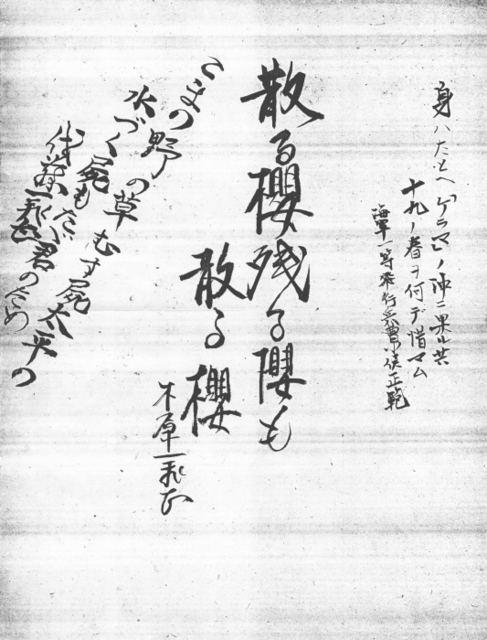 身ハたとへ「ゲラマ」ノ沖ニ果ル共
十九ノ春ヲ何デ惜マム
海軍一等飛行兵曹 俣正範
散る櫻残る櫻も
散る櫻
木原一飛
野の草むす屍太平の
水づく屍も君のため
一飛曹